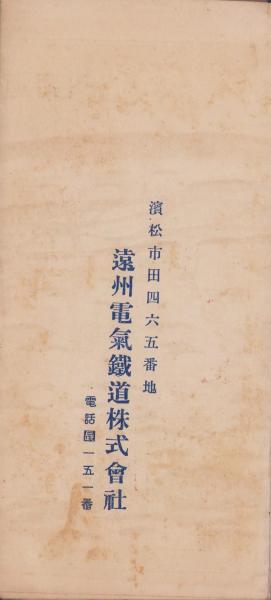 濱松市田四六五番地
遠州電氣鐵道株式會社
電話一五一番